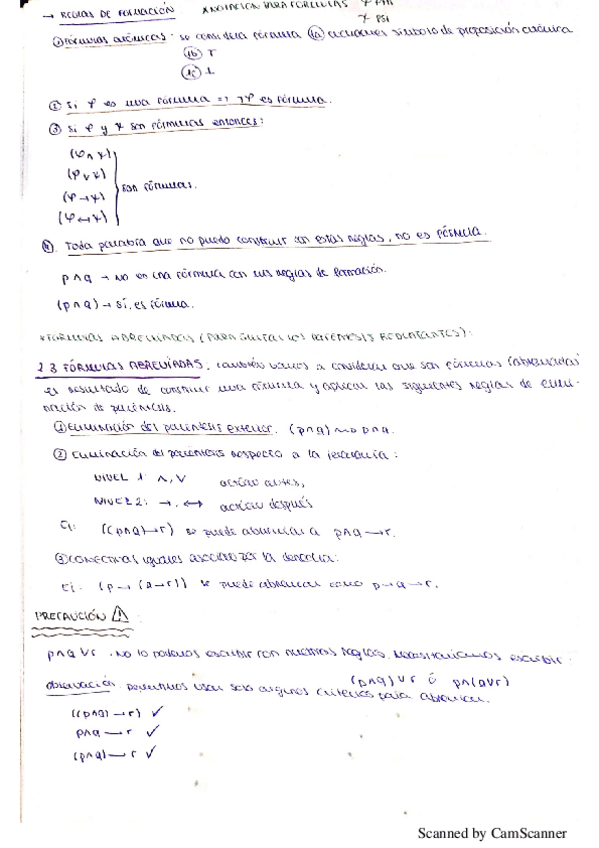 → REGLAS DE FORMACIÓN * NOTACIÓN PARA FÓRMULAS φ PHI
ψ PSI
① Fórmulas atómicas: se considera fórmula (1a) cualquier símbolo de proposición atómica
(1b) T
(1c) ⊥
② Si φ es una fórmula => ¬φ es fórmula.
③ Si φ y ψ son fórmulas entonces:
(φ∧ψ)
(φ∨ψ)
(φ→ψ)
(φ↔ψ)
son fórmulas.
④. Toda palabra que no puedo construir con estas reglas, no es fórmula.
p∧q → no es una fórmula con mis reglas de formación.
(p∧q) → sí, es fórmula.
* FÓRMULAS ABREVIADAS (PARA QUITAR LOS PARÉNTESIS REDUNDANTES):
2.3 FÓRMULAS ABREVIADAS. También vamos a considerar que son fórmulas (abreviadas)
el resultado de construir una fórmula y aplicar las siguientes reglas de elimi-
nación de paréntesis.
① Eliminación del paréntesis exterior. (p∧q) ⇝ p∧q.
② Eliminación del paréntesis respecto a la jerarquía:
NIVEL 1: ∧, ∨ actúan antes,
NIVEL 2: →, ↔ actúan después
Ej: ((p∧q)→r) se puede abreviar a p∧q→r.
③ Conectivas iguales asocio por la derecha:
Ej: (p→(q→r)) se puede abreviar como p→q→r.
PRECAUCIÓN ⚠ :
p∧q∨r. No lo podemos escribir con nuestras reglas. Necesitaríamos escribir:
(p∧q)∨r ó p∧(q∨r)
Observación. Podemos usar solo algunos criterios para abreviar.
((p∧q)→r) ✓
p∧q→r ✓
(p∧q)→r ✓
Scanned by CamScanner